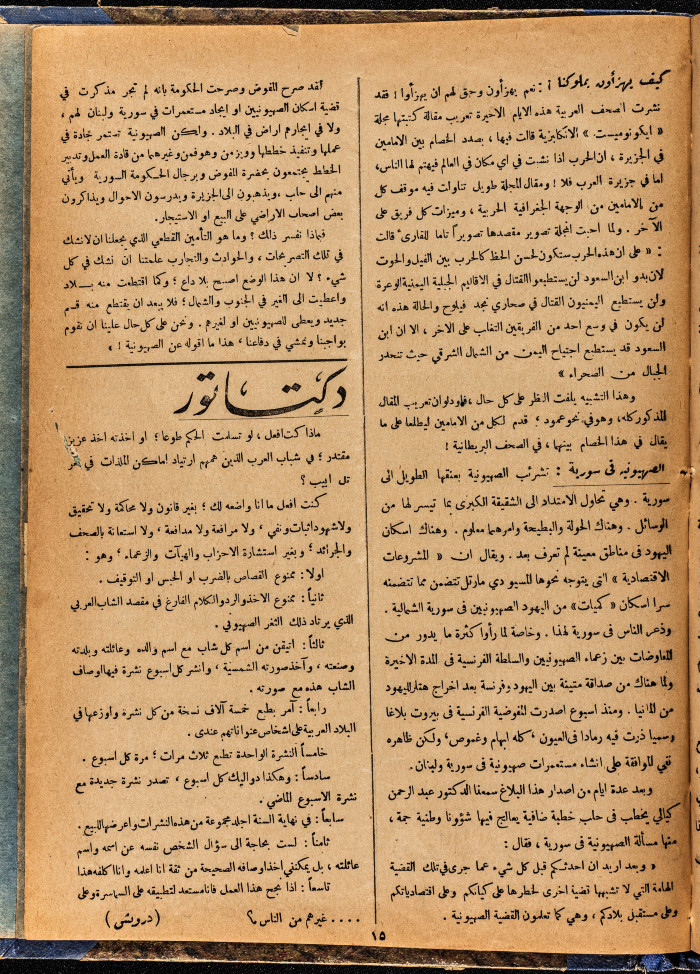 كيف يهزأون بملوكنا ! : نعم يهزأون وحق لهم ان يهزأوا ! فقد
نشرت الصحف العربية هذه الايام الاخيرة تعريب مقالة كتبتها مجلة
« ايكونوميست » الانكليزية قالت فيها ، بصدد الخصام بين الامامين
في الجزيرة ، ان الحرب اذا نشبت في اي مكان في العالم فيهتم لها الناس،
اما في جزيرة العرب فلا ! ومقال المجلة طويل تناولت فيه موقف كل
من الامامين من الوجهة الجغرافية الحربية ، وميزات كل فريق على
الآخر . ولما احبت المجلة تصوير مقصدها تصويراً تاما للقارئ قالت
: « على ان هذه الحرب ستكون لحسن الحظ كالحرب بين الفيل والحوت
لان بدو ابن السعود لن يستطيعوا القتال في الاقاليم الجبلية اليمنية الوعرة
ولن يستطيع اليمنيون القتال في صحاري نجد فيلوح والحالة هذه انه
لن يكون في وسع احد من الفريقين التغلب على الاخر ، الا ان ابن
السعود قد يستطيع اجتياح اليمن من الشمال الشرقي حيث تنحدر
الجبال من الصحراء »
وهذا التشبيه يلفت النظر على كل حال ، فهلا دلوان تعريب المقال
المذكور كله ، وهو في نحو عمود ؛ قدم لكل من الامامين ليطلعا على ما
يقال في هذا الخصام بينها ، في الصحف البريطانية !
الصهيونيه في سورية : تشرئب الصهيونية بعنقها الطويل الى
سورية . وهي تحاول الامتداد الى الشقيقة الكبرى بما تيسر لها من
الوسائل . وهناك الحولة والبطيحة وامرهما معلوم . وهناك اسكان
اليهود في مناطق معينة لم تعرف بعد . ويقال ان « المشروعات
الاقتصادية » التى يتوجه نحوها المسيو دي مارتل تتضمن مما تتضمنه
سرا اسكان « كميات» من اليهود الصهيونيين في سورية الشمالية .
وذعر الناس فى سورية لهذا . وخاصة لما رأوا كثرة ما يدور من
المفاوضات بين زعماء الصهيونيين والسلطة الفرنسية في المدة الاخيرة
ولما هناك من صداقة متينة بين اليهود وفرنسة بعد اخراج هتلر لليهود
من المانيا . ومنذ اسبوع اصدرت المفوضية الفرنسية في بيروت بلاغا
رسميا ذرت فيه رمادا فى العيون ، كله ابهام وغموض ، ولكن ظاهره
نفي للموافقة على انشاء مستعمرات صهيونية في سورية ولبنان .
وبعد عدة ايام من اصدار هذا البلاغ سمعنا الدكتور عبد الرحمن
كيالي يخطب في حلب خطبة ضافية يعالج فيها شؤونا وطنية جمة ،
منها مسألة الصهيونية في سورية ، فقال :
« وبعد اريد ان احدثكم قبل كل شيء عما جرى في تلك القضية
الهامة التي لا تشبهها قضية اخرى لخطرها على كيانكم وعلى اقتصادياتكم
وعلى مستقبل بلادكم ، وهي كما تعلمون القضية الصهيونية .
لقد صرح المفوض وصرحت الحكومة بانه لم تجر مذكرت في
قضية اسكان الصهيونيين او ايجاد مستعمرات في سورية ولبنان لهم ،
ولا في ايجارهم اراض في البلاد . ولكن الصهيونية تستمر جادة في
عملها وتنفيذ خططها وويزمن وهوفمن وغيرهما من قادة العمل وتدبير
الخطط يجتمعون بحضرة المفوض وبرجال الحكومة السورية ويأتي
منهم الى حلب ، ويذهبون الى الجزيرة ويدرسون الاحوال ويذاكرون
بعض اصحاب الاراضي على البيع او الاستيجار.
فبماذا نفسر ذلك ؟ وما هو التأمين القطعي الذي يجعلنا ان لا نشك
في تلك التصريحات ، والحوادث والتجارب علمتنا ان نشك في كل
شيء ؟ لا ان هذا الوضع اصبح بلا داع ؛ وكما اقتطعت منه بـلاد
واعطيت الى الغير في الجنوب والشمال ؛ فلا يبعد ان يقتطع منه قسم
جديد ويعطى للصهيونيين او لغيرهم . ونحن على كل حال علينا ان نقوم
بواجبنا ونمشي في دفاعنا ، هذا ما اقوله عن الصهيونية ! »
دكتاتور
ماذا كنت افعل ، لو تسلمت الحكم طوعا ؛ او اخذته اخذ عزيز
مقتدر ؛ في شباب العرب الذين همهم ارتياد اماكن الملذات في
تل ابيب ؟
كنت افعل ما انا واضعه لك ؛ بغير قانون ولا محاكمة ولا تحقيق
ولا شهود اثبات ونفي ، ولا مرافعة ولا مدافعة ، ولا استعانة بالصحف
والجرائد ؛ وبغير استشارة الاحزاب والهيآت والزعماء ؛ وهو :
اولا : ممنوع القصاص بالضرب او الحبس او التوقيف .
ثانياً : ممنوع الاخذ والرد والكلام الفارغ في مقصد الشاب العربي
الذي يرتاد ذلك الثغر الصهيوني .
ثالثاً : اتيقن من اسم كل شاب مع اسم والده وعائلته وبلدته
وصنعته ، وآخذ صورته الشمسية ، وانشر كل اسبوع نشرة فيها اوصاف
الشاب هذه مع صورته .
رابعاً : آمر بطبع خمسة آلاف نسخة من كل نشرة واوزعها في
البلاد العربية على اشخاص عنواناتهم عندى .
خامساً النشرة الواحدة تطبع ثلاث مرات ؛ مرة كل اسبوع .
سادساً : وهكذا دواليك كل اسبوع ، تصدر نشرة جديدة مع
نشرة الاسبوع الماضي .
سابعاً : في نهاية السنة اجلد مجموعة من هذه النشرات واعرضها للبيع .
ثامناً : لست بحاجة الى سؤال الشخص نفسه عن اسمه واسم
عائلته ، بل يمكنني اخذ اوصافه الصحيحة من ثقة انا اعلمه وانا اكلفه هذا
تاسعاً : اذا نجح هذا العمل فانا مستعد لتطبيقه على السماسرة وعلى
.... غيرهم من الناس ؟ (درويش)
١٥